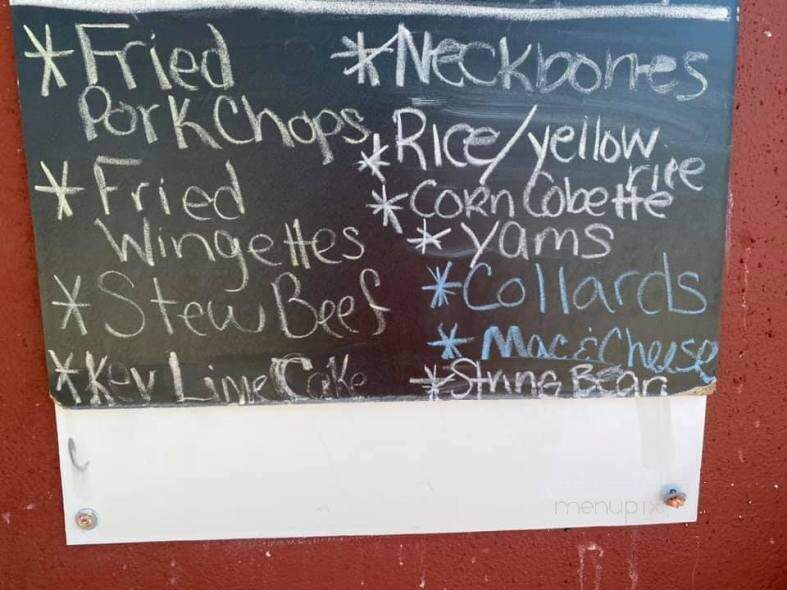 *Fried
Pork Chops
*Fried
Wingettes
*Stew Beef
*Key Lime Cake
*Neckbones
*Rice/yellow
rice
*Corn Cobette
*yams
*Collards
*Mac & Cheese
*String Bean
menupix